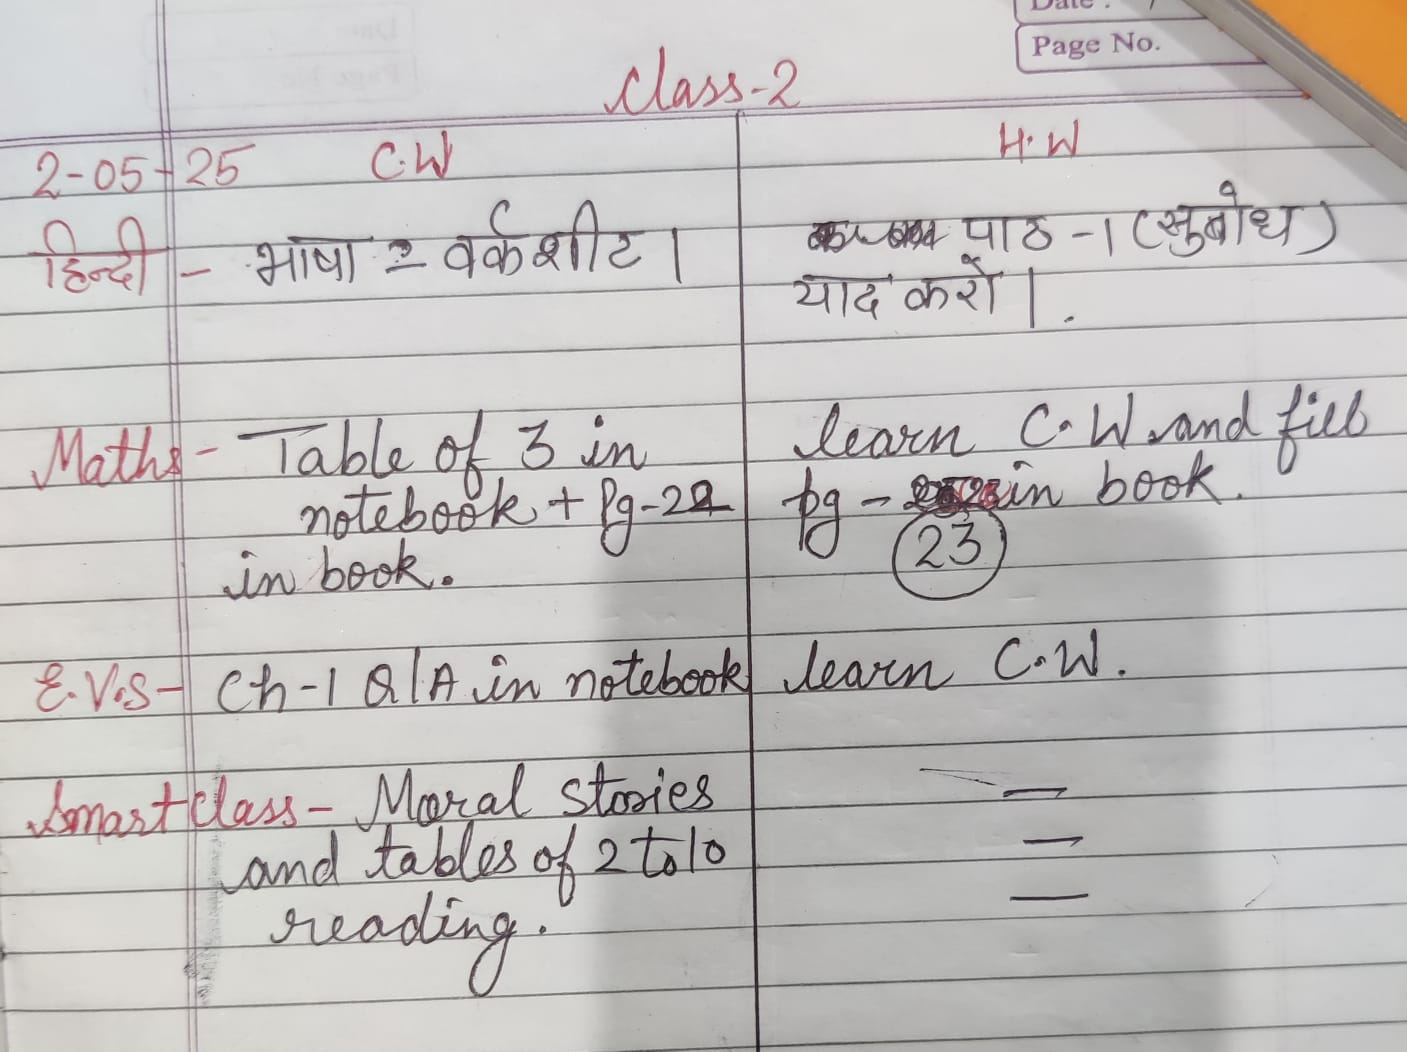 Page No.
Class-2
2-05-25 C.W H.W
हिन्दी - भाषा = वर्कशीट । पाठ -1 (सुबोध)
याद करो ।.
Maths - Table of 3 in learn C.W and fill
notebook + Pg-22 pg - in book.
in book. 23
E.V.S - Ch-1 Q/A in notebook learn C.W.
Smart class - Moral stories —
and tables of 2 to 10 —
reading. —